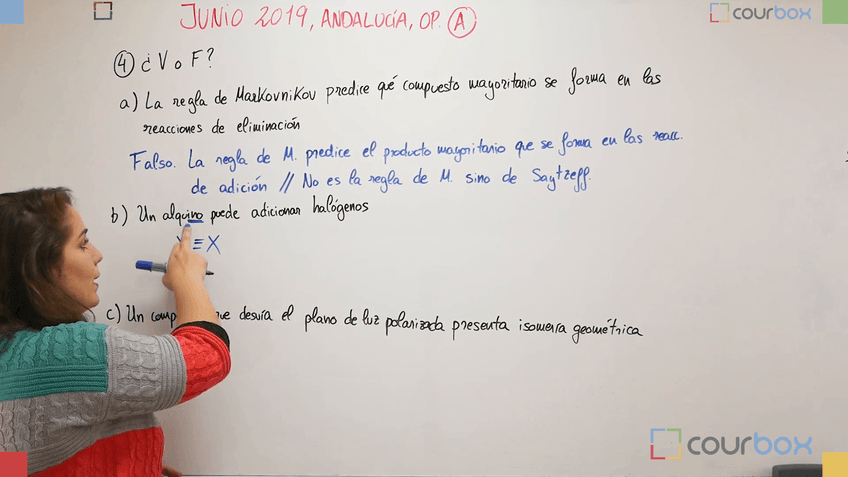 JUNIO 2019, ANDALUCÍA, OP. A
courbox
4 ¿V o F?
a) La regla de Markovnikov predice qué compuesto mayoritario se forma en las
reacciones de eliminación
Falso. La regla de M. predice el producto mayoritario que se forma en las reacc.
de adición // No es la regla de M. sino de Saytzeff.
b) Un alquino puede adicionar halógenos
≡X
c) Un desvía el plano de luz polarizada presenta isomería geométrica
courbox